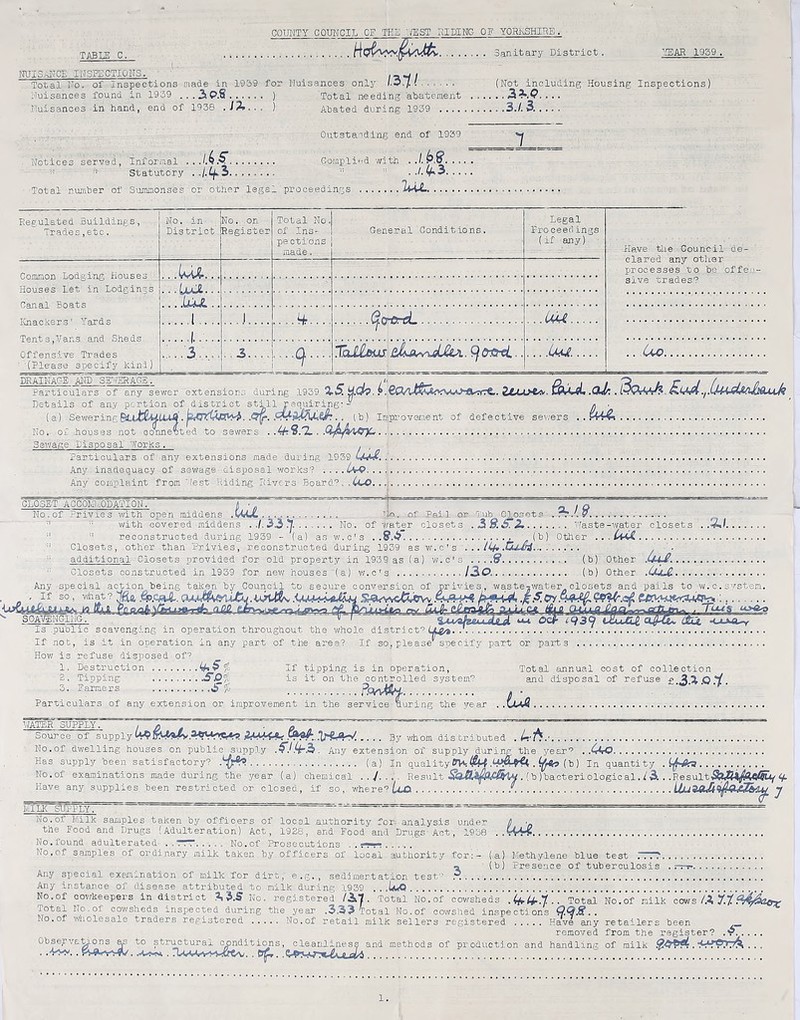 COUNTY COUNCIL OF THE WEST RIDING OF YORKSHIRE.
TABLE C. .....................Holmfirth......... Sanitary District. YEAR 1939.
NUISANCE INSPECTIONS.
Total No. of Inspections made in 1939 for Nuisances only 1371...... (Not including Housing Inspections)
Nuisances found in 1939 ...308...... ) Total needing abatement ......320....
Nuisances in hand, end of 1938 .12... ) Abated during 1939 ...........313....
Outstanding end of 1939 7
Notices served, Informal ...165........ Complied with ..168.....
" " Statutory ..143........ " ..143.....
Total number of Summonses or other legal proceedings .......Nil......................
Regulated Buildings, Trades,etc. | No. in District | No. on Register | Total No. of Inspections made. | General Conditions. | Legal Proceedings (if any) | Have the Council declared any other processes to be offensive trades?
Common Lodging Houses ...Nil...
Houses Let in Lodgings ..Nil...
Canal Boats ...Nil...
Knackers' Yards 1 1 4 Good Nil
Tents,Vans and Sheds 1
Offensive Trades 3 3 9 Tallow chandler good. Nil No
(Please specify kind)
DRAINAGE AND SEWERAGE.
Particulars of any sewer extensions during 1939 25 yds 6" earthenware sewer laid at Bank End, Underbank
Details of any portion of district still requiring:-
(a) Sewering Outlying portions of district.. (b) Improvement of defective sewers .Nil
No. of houses not connected to sewers ..482 approx
Sewage Disposal Works.
Particulars of any extensions made during 1939 Nil
Any inadequacy of sewage disposal works? ....No
Any complaint from West Riding Rivers Board? ..No
CLOSET ACCOMMODATION.
No.of Privies with open middens .Nil No. of Pail or Tub Closets .218
" " with covered middens ..1337 No. of water closets .3852 Waste-water closets ..21
" " reconstructed during 1939 - (a) as w.c's ..85 (b) Other ...Nil
" Closets, other than Privies, reconstructed during 1939 as w.c's ...14 tubs
" additional Closets provided for old property in 1939 as (a) w.c's .....8 (b) Other .Nil
" Closets constructed in 1939 for new houses (a) w.c's ..........130 (b) Other .Nil
Any special action being taken by Council to secure conversion of privies, waste-water closets and pails to w.c.system.
If so, what? The local authority with ministry sanction have paid £5 or half cost of conversion
(whichever is the least) towards all conversions of privies or tub closets since the amalgamation. This was
suspended in Oct 1939 until after the war
SCAVENGING.
Is public scavenging in operation throughout the whole district? yes.
If not, is it in operation in any part of the area? If so, please specify part or parts ....
How is refuse disposed of?
1. Destruction .......45 % If tipping is in operation, Total annual cost of collection
2. Tipping ........50 % is it on the controlled system? and disposal of refuse £.3207.
3. Farmers .........5 % Partly
Particulars of any extension or improvement in the service during the year ..Nil
WATER SUPPLY.
Source of supply No fresh sources since last year.... By whom distributed .L.A.
No.of dwelling houses on public supply .5143. Any extension of supply during the year? ..No
Has supply been satisfactory? .Yes (a) In quality on the whole. Yes (b) In quantity .Yes
No.of examinations made during the year (a) chemical ..1... Result Satisfactory. (b)bacteriological.13...Result Satisfactory 4
Have any supplies been restricted or closed, if so, where? No Unsatisfactory 7
MILK SUPPLY.
No.of Milk samples taken by officers of local authority for analysis under
the Food and Drugs (Adulteration) Act, 1928, and Food and Drugs Act, 1938 ..Nil
No.found adulterated ..—..... No.of Prosecutions ..—.....
No.of samples of ordinary milk taken by officers of local authority for:- (a) Methylene blue test .—
(b) Presence of tuberculosis .—
Any special examination of milk for dirt, e.g., sedimentation test? 3
Any instance of disease attributed to milk during 1939 ...No
No.of cowkeepers in district 235 No. registered 137. Total No.of cowsheds .447.. Total No.of milk cows 1277 approx
Total No.of cowsheds inspected during the year .333 Total No.of cowshed inspections 998..
No.of wholesale traders registered ..... No.of retail milk sellers registered ..... Have any retailers been
removed from the register? .5
Observations as to structural conditions, cleanliness and methods of production and handling of milk good work
in hand in number of cowsheds
1.